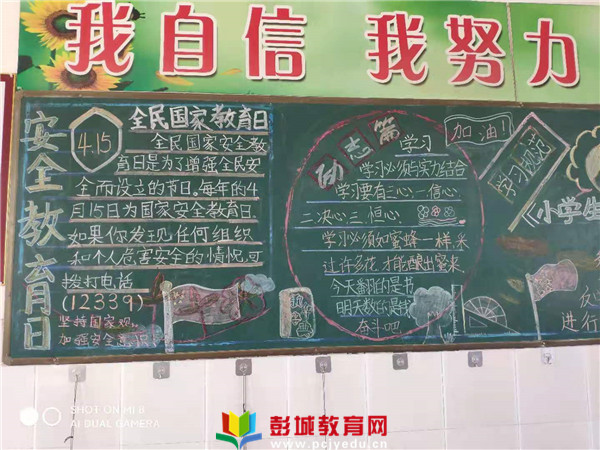 我自信 我努力
安全教育日
4.15
全民国家教育日
全民国家安全教
育日是为了增强全民安
全而设立的节日。每年的4
月15日为国家安全教育日。
如果你发现任何组织
和个人危害安全的情况,可
拨打电话
(12339)
坚持国家观
加强安全意
励志篇
学习
学习必须与实力结合
学习要有三心,一信心
二决心三恒心
学习必须如蜜蜂一样,采
过许多花,才能酿出蜜来
今天翻的是书
明天数的是钱
奋斗吧
加油!
学习规范
《小学生
进行
SHOT ON MI 8
AI DUAL CAMERA
彭城教育网
www.pcjyedu.cn